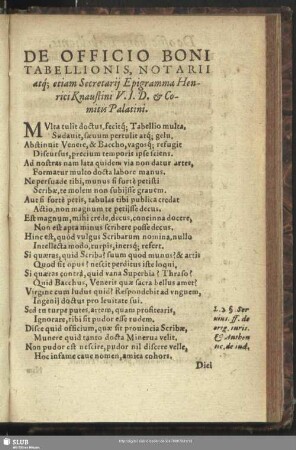 DE OFFICIO BONI
TABELLIONIS, NOTARII
atq; etiam Secretarij Epigramma Hen-
rici Knaustini V. I. D. & Co-
mitis Palatini.
MUlta tulit doctus, fecitq; Tabellio multa,
Sudauit, sæuum pertulit atq; gelu,
Abstinuit Venere, & Baccho, vagoq; refugit
Discursus, precium temporis ipse sciens.
Ad nostras nam lata quidem via non datur artes,
Formatur multo docta labore manus.
Ne persuade tibi, munus si fortè petisti
Scribæ, te molem non subijsse grauem.
Aut si fortè petis, tabulas tibi publica credat
Actio, non magnum te petijsse decus.
Est magnum, mihi crede, decus, once inna docere,
Non est apta minus scribere posse decus.
Hinc est, quòd vulgus Scribarum nomina, nullo
Intellecta modo, turpis, inersq; refert.
Si quæras, quid Scriba? suum quod munus? & artis
Quod sit opus? nescit perditus iste loqui,
Si quæras contrà, quid vana Superbia? Thraso?
Quid Bacchus, Veneris quæ sacra bellus amet?
Virgine cum ludus quius? Respondebit ad vnguem,
Ingenij doctus pro leuitate sui.
Sed tu turpe putes, artem, quam profitearis,
Ignorare, tibi sit pudor esse rudem.
Disce quid officium, quæ sit prouincia Scribæ,
Munere quid tanto docta Minerua velit.
Non pudor est nescire, pudor nil discere velle,
Hoc infame caue nomen, amica cohors.
L. 2. § Ser
uius. ff. de
orig. iuris.
& Authen
tic. de iud.
Dici